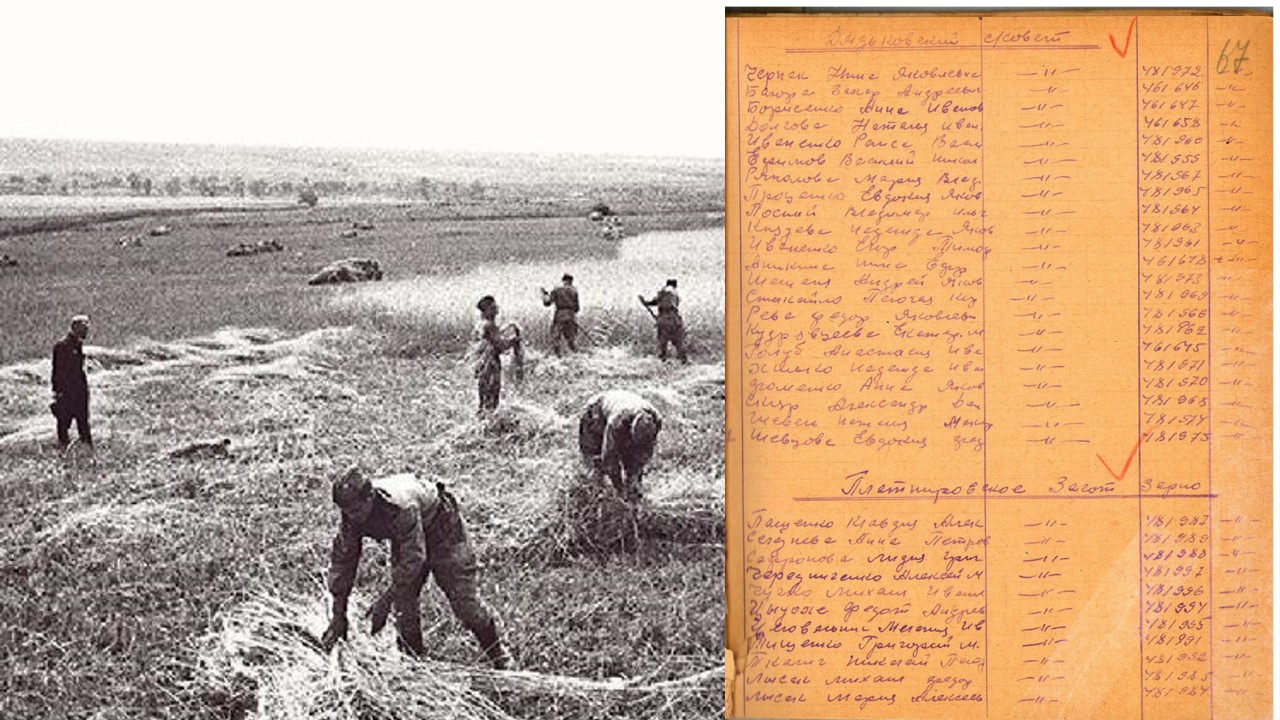 Дядьковский с/совет
67
Черняк Нина Яковлевна —"— 481972 —"—
Захар Андреевич —"— 461646 —"—
Борисенко Анна Иванов —"— 461647 —"—
Долгова Наталия Иван. —"— 461658 —"—
Иваненко Раиса Васил —"— 481960 —"—
Ефимов Василий Никол —"— 481959 —"—
Мария Влад. —"— 481967 —"—
Проценко Евдокия Яков —"— 481965 —"—
Владимир Ильг —"— 481964 —"—
Князева Надежда Яков —"— —"—
Иваненко Егор Тимоф —"— 481961 —"—
Аникина Нина Егор —"— 461678 —"—
Андрей Яков —"— 481973 —"—
Пелагея —"— 481969 —"—
Рева Федор Яковлевич —"— 481966 —"—
Кудрявцева Екатер. М —"— 481962 —"—
Голуб Анастасия Ива —"— 461645 —"—
Надежда Иван —"— 481971 —"—
Анна Яков —"— 481970 —"—
Александр Дан —"— 481968 —"—
—"— 481974 —"—
Шевцова Евдокия —"— 481975 —"—
Платнировское Загот зерно
Пащенко Клавдия Алек —"— 481987 —"—
Анна Петров —"— 481989 —"—
Сафронова Лидия Григ —"— 481988 —"—
Чередниченко Алексей М —"— 481997 —"—
Чучко Михаил Иванов —"— 481996 —"—
Федот Андрев —"— 481994 —"—
Ив —"— 481995 —"—
Тищенко Григорий М. —"— 481991 —"—
Ткалич Николай Петр —"— 481992 —"—
Лысак Михаил Федор —"— 481985 —"—
Лысак Мария Алексеев —"— 481984 —"—